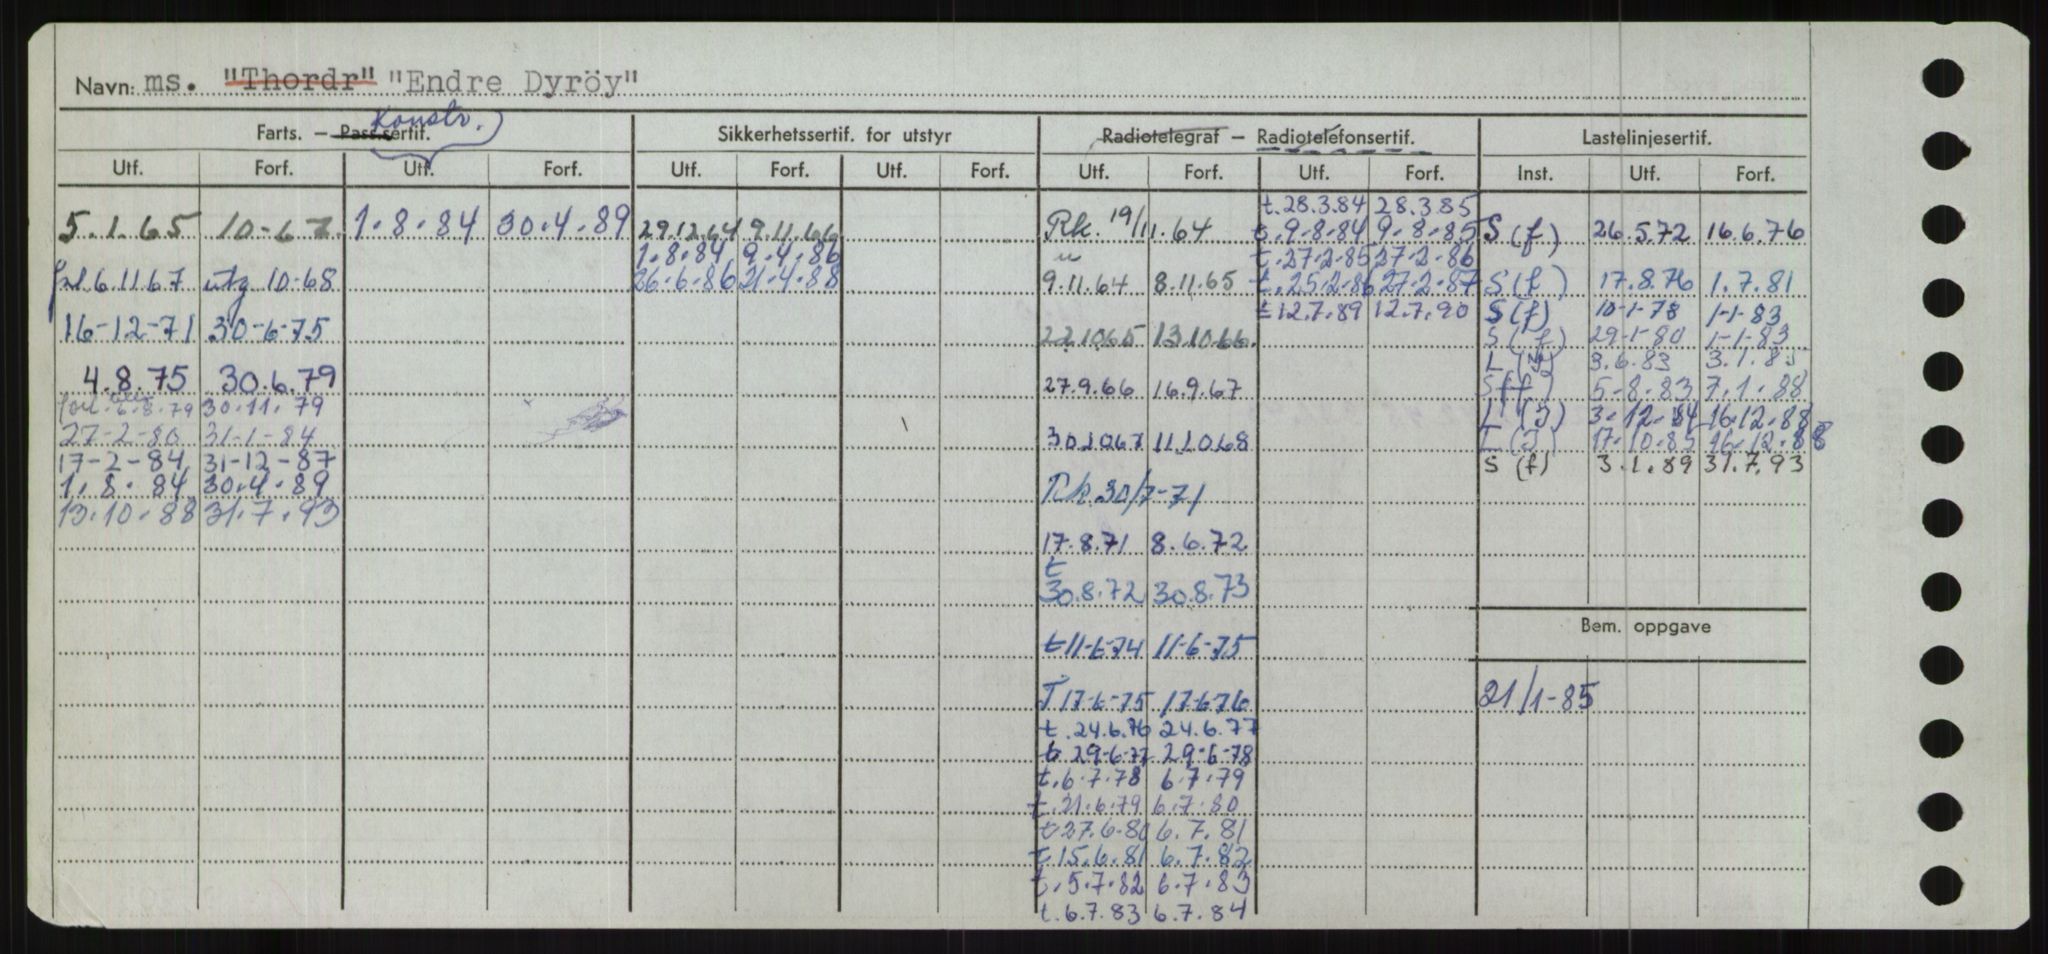 Navn: ms. "Thordr" "Endre Dyröy"
Konstr.
Farts. — Pass.sertif.
Utf. Forf. Utf. Forf.
5.1.65 10-67. 1.8.84 30.4.89
6.11.67 utg 10-68
16-12-71 30-6-75
4.8.75 30.6.79
forl. 6.8.79 30.11.79
27-2-80 31-1-84
17-2-84 31-12-87
1.8.84 30.4.89
13.10.88 31.7.93
Sikkerhetssertif. for utstyr
Utf. Forf. Utf. Forf.
29.12.64 9.11.66
1.8.84 9.4.86
26.6.86 21.4.88
Radiotelegraf — Radiotelefonsertif.
Utf. Forf.
Rk. 19/11.64
9.11.64 8.11.65
22.10.65 13.10.66.
27.9.66 16.9.67
30.10.67 11.10.68
Rk 30/7-71
17.8.71 8.6.72
t
30.8.72 30.8.73
t 11-6-74 11-6-75
T 17-6-75 17-6-76
t. 24.6.76 24.6.77
t. 29-6-77 29-6-78
t. 6.7.78 6.7.79
t. 21.6.79 6.7.80
t 27.6.80 6.7.81
t. 15.6.81 6.7.82
t. 5.7.82 6.7.83
t. 6.7.83 6.7.84
Utf. Forf.
t. 28.3.84 28.3.85
t. 9.8.84 9.8.85
t. 27.2.85 27.2.86
t. 25.2.86 27.2.87
t 12.7.89 12.7.90
Lastelinjesertif.
Inst. Utf. Forf.
S (f) 26.5.72 16.6.76
S (f) 17.8.76 1.7.81
S (f) 10-1-78 1-1-83
S (f) 29-1-80 1-1-83
L (J) 3.6.83 3.1.85
S (f) 5-8-83 7.1.88
L (J) 3.12.84 16.12.88
L (J) 17.10.85 16.12.88
S (f) 3.1.89 31.7.93
Bem. oppgave
21/1-85